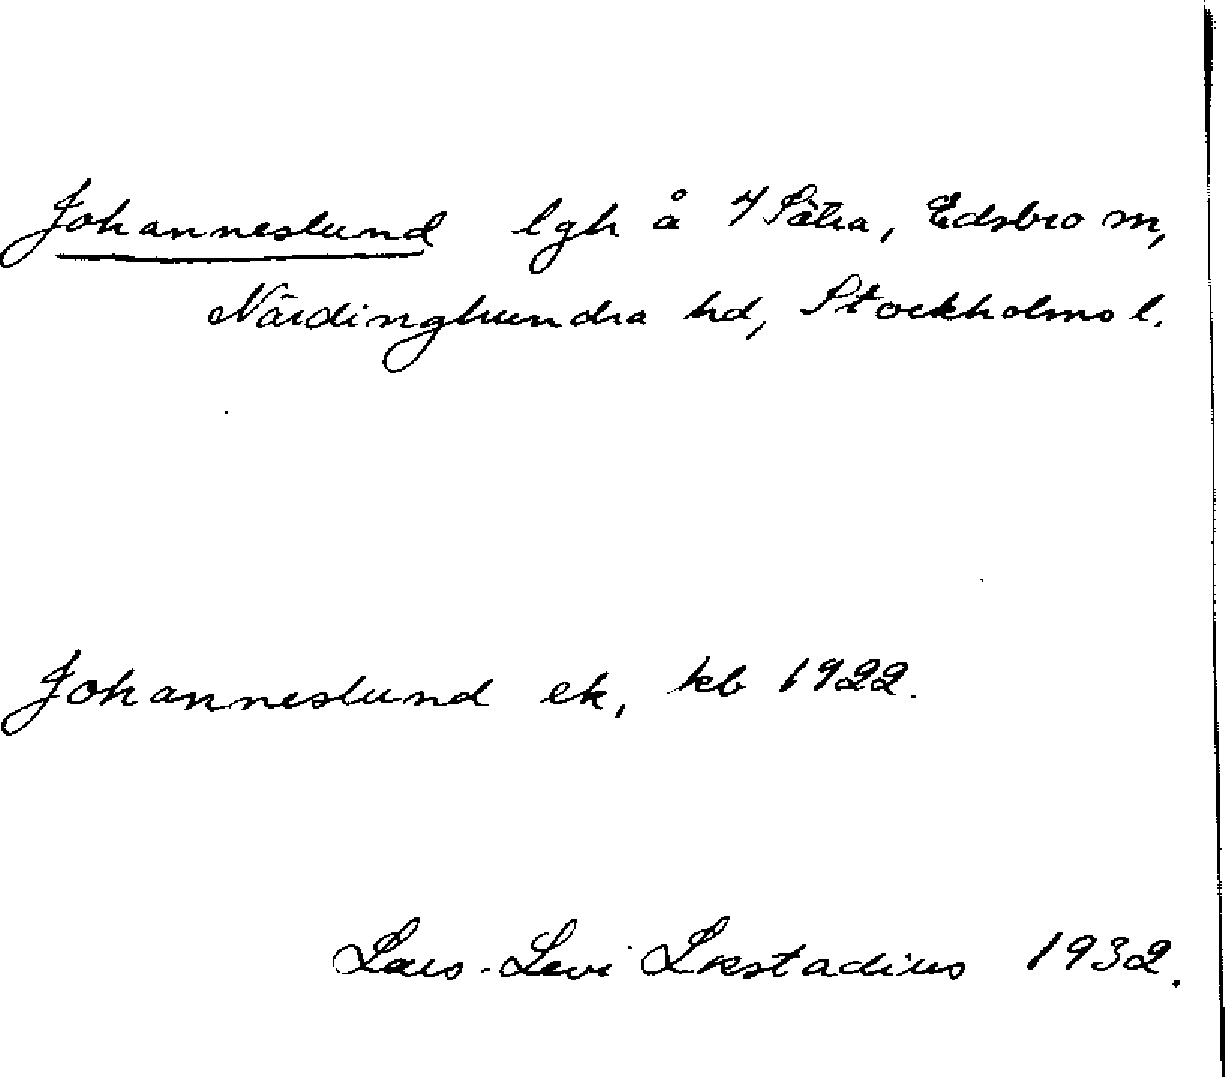 Johanneslund lgh å 4 Sätra, Edsbro sn,
Närdinghundra hd, Stockholms l.
Johanneslund ek, kb 1922.
Lars-Levi Læstadius 1932.